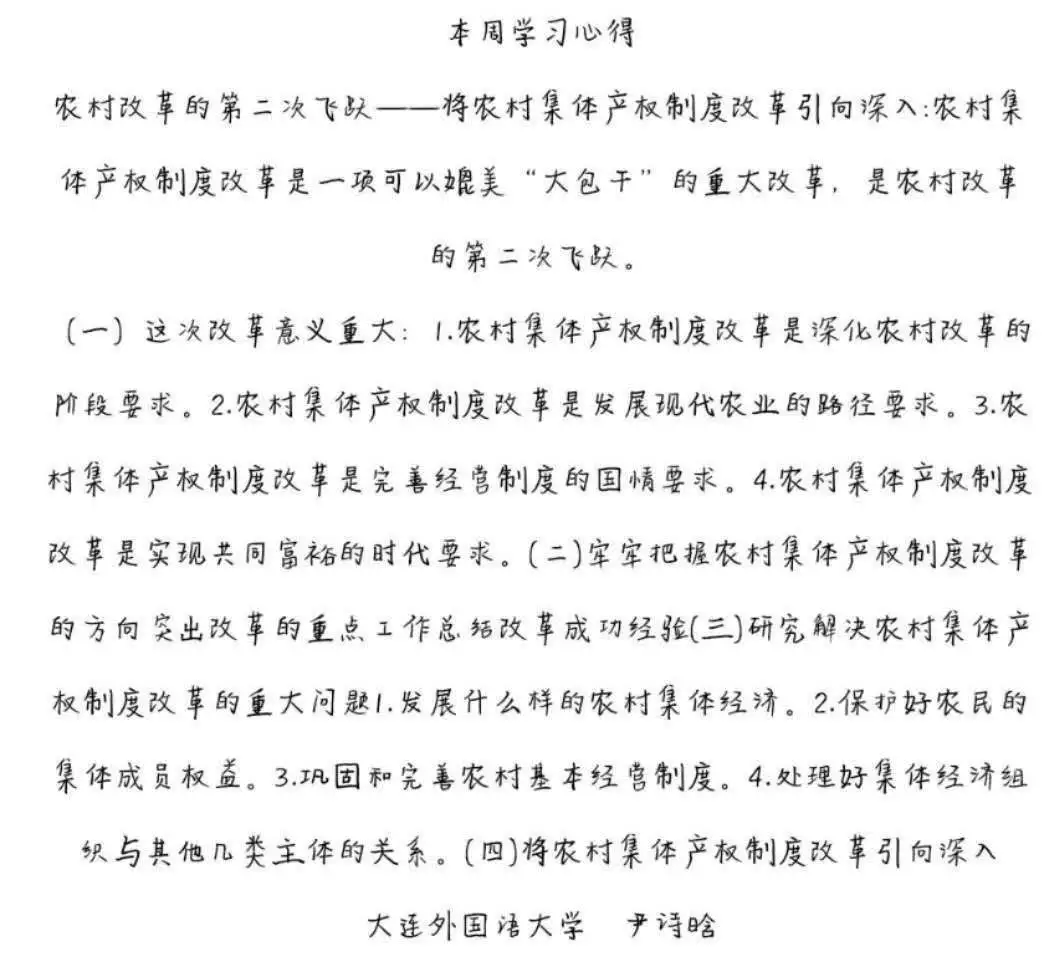 本周学习心得
农村改革的第二次飞跃——将农村集体产权制度改革引向深入:农村集
体产权制度改革是一项可以媲美“大包干”的重大改革，是农村改革
的第二次飞跃。
(一）这次改革意义重大：1.农村集体产权制度改革是深化农村改革的
阶段要求。2.农村集体产权制度改革是发展现代农业的路径要求。3.农
村集体产权制度改革是完善经营制度的国情要求。4.农村集体产权制度
改革是实现共同富裕的时代要求。(二)牢牢把握农村集体产权制度改革
的方向突出改革的重点工作总结改革成功经验(三)研究解决农村集体产
权制度改革的重大问题1.发展什么样的农村集体经济。2.保护好农民的
集体成员权益。3.巩固和完善农村基本经营制度。4.处理好集体经济组
织与其他几类主体的关系。(四)将农村集体产权制度改革引向深入
大连外国语大学 尹诗晗